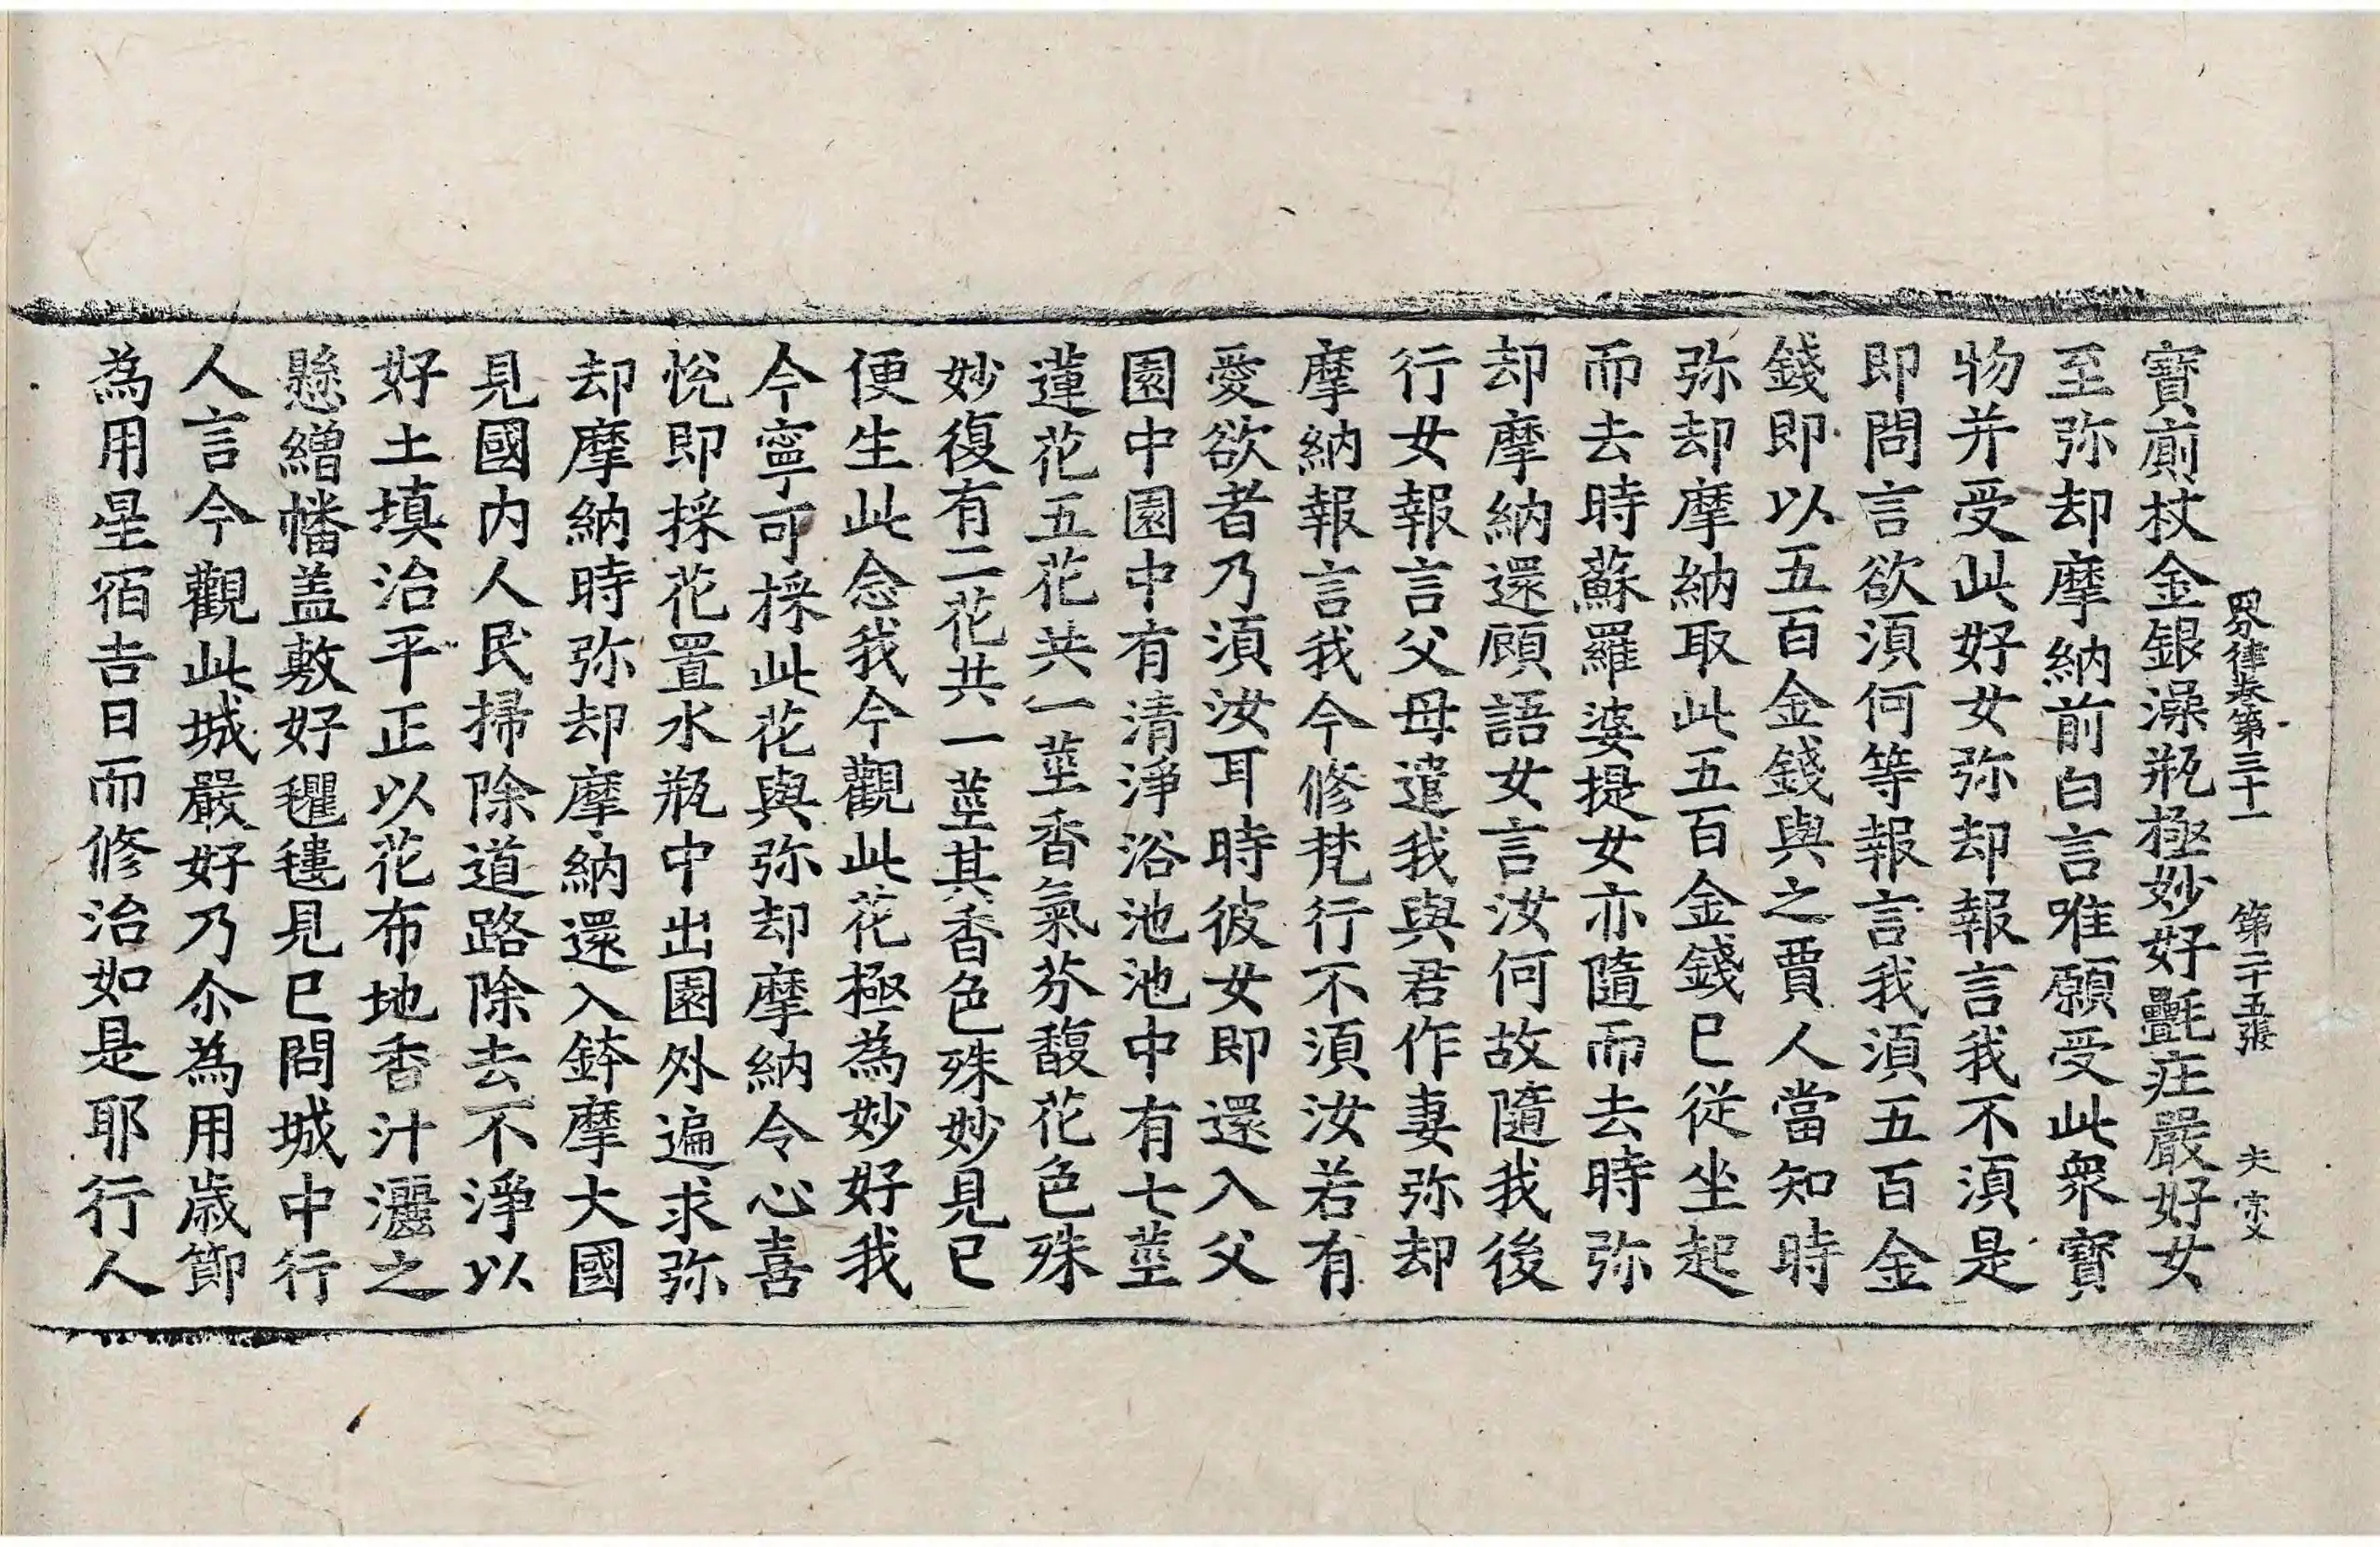 四分律卷第三十一 第二十五張 夫
寶廁杖金銀澡瓶極妙好㲲㽵嚴好女
至弥却摩納前白言唯願受此衆寶
物并受此好女弥却報言我不須是
即問言欲須何等報言我須五百金
錢即以五百金錢與之賈人當知時
弥却摩納取此五百金錢已從坐起
而去時蘇羅婆提女亦隨而去時弥
却摩納還顧語女言汝何故隨我後
行女報言父母遣我與君作妻弥却
摩納報言我今修梵行不須汝若有
愛欲者乃須汝耳時彼女即還入父
園中園中有清淨浴池池中有七莖
蓮花五花共一莖香氣芬馥花色殊
妙復有二花共一莖其香色殊妙見已
便生此念我今觀此花極為妙好我
今寧可採此花與弥却摩納令心喜
悅即採花置水瓶中出園外遍求弥
却摩納時弥却摩納還入鉢摩大國
見國內人民掃除道路除去不淨以
好土填治平正以花布地香汁灑之
懸繒幡盖敷好氍㲣見已問城中行
人言今觀此城嚴好乃尒為用歲節
為用星宿吉日而修治如是耶行人